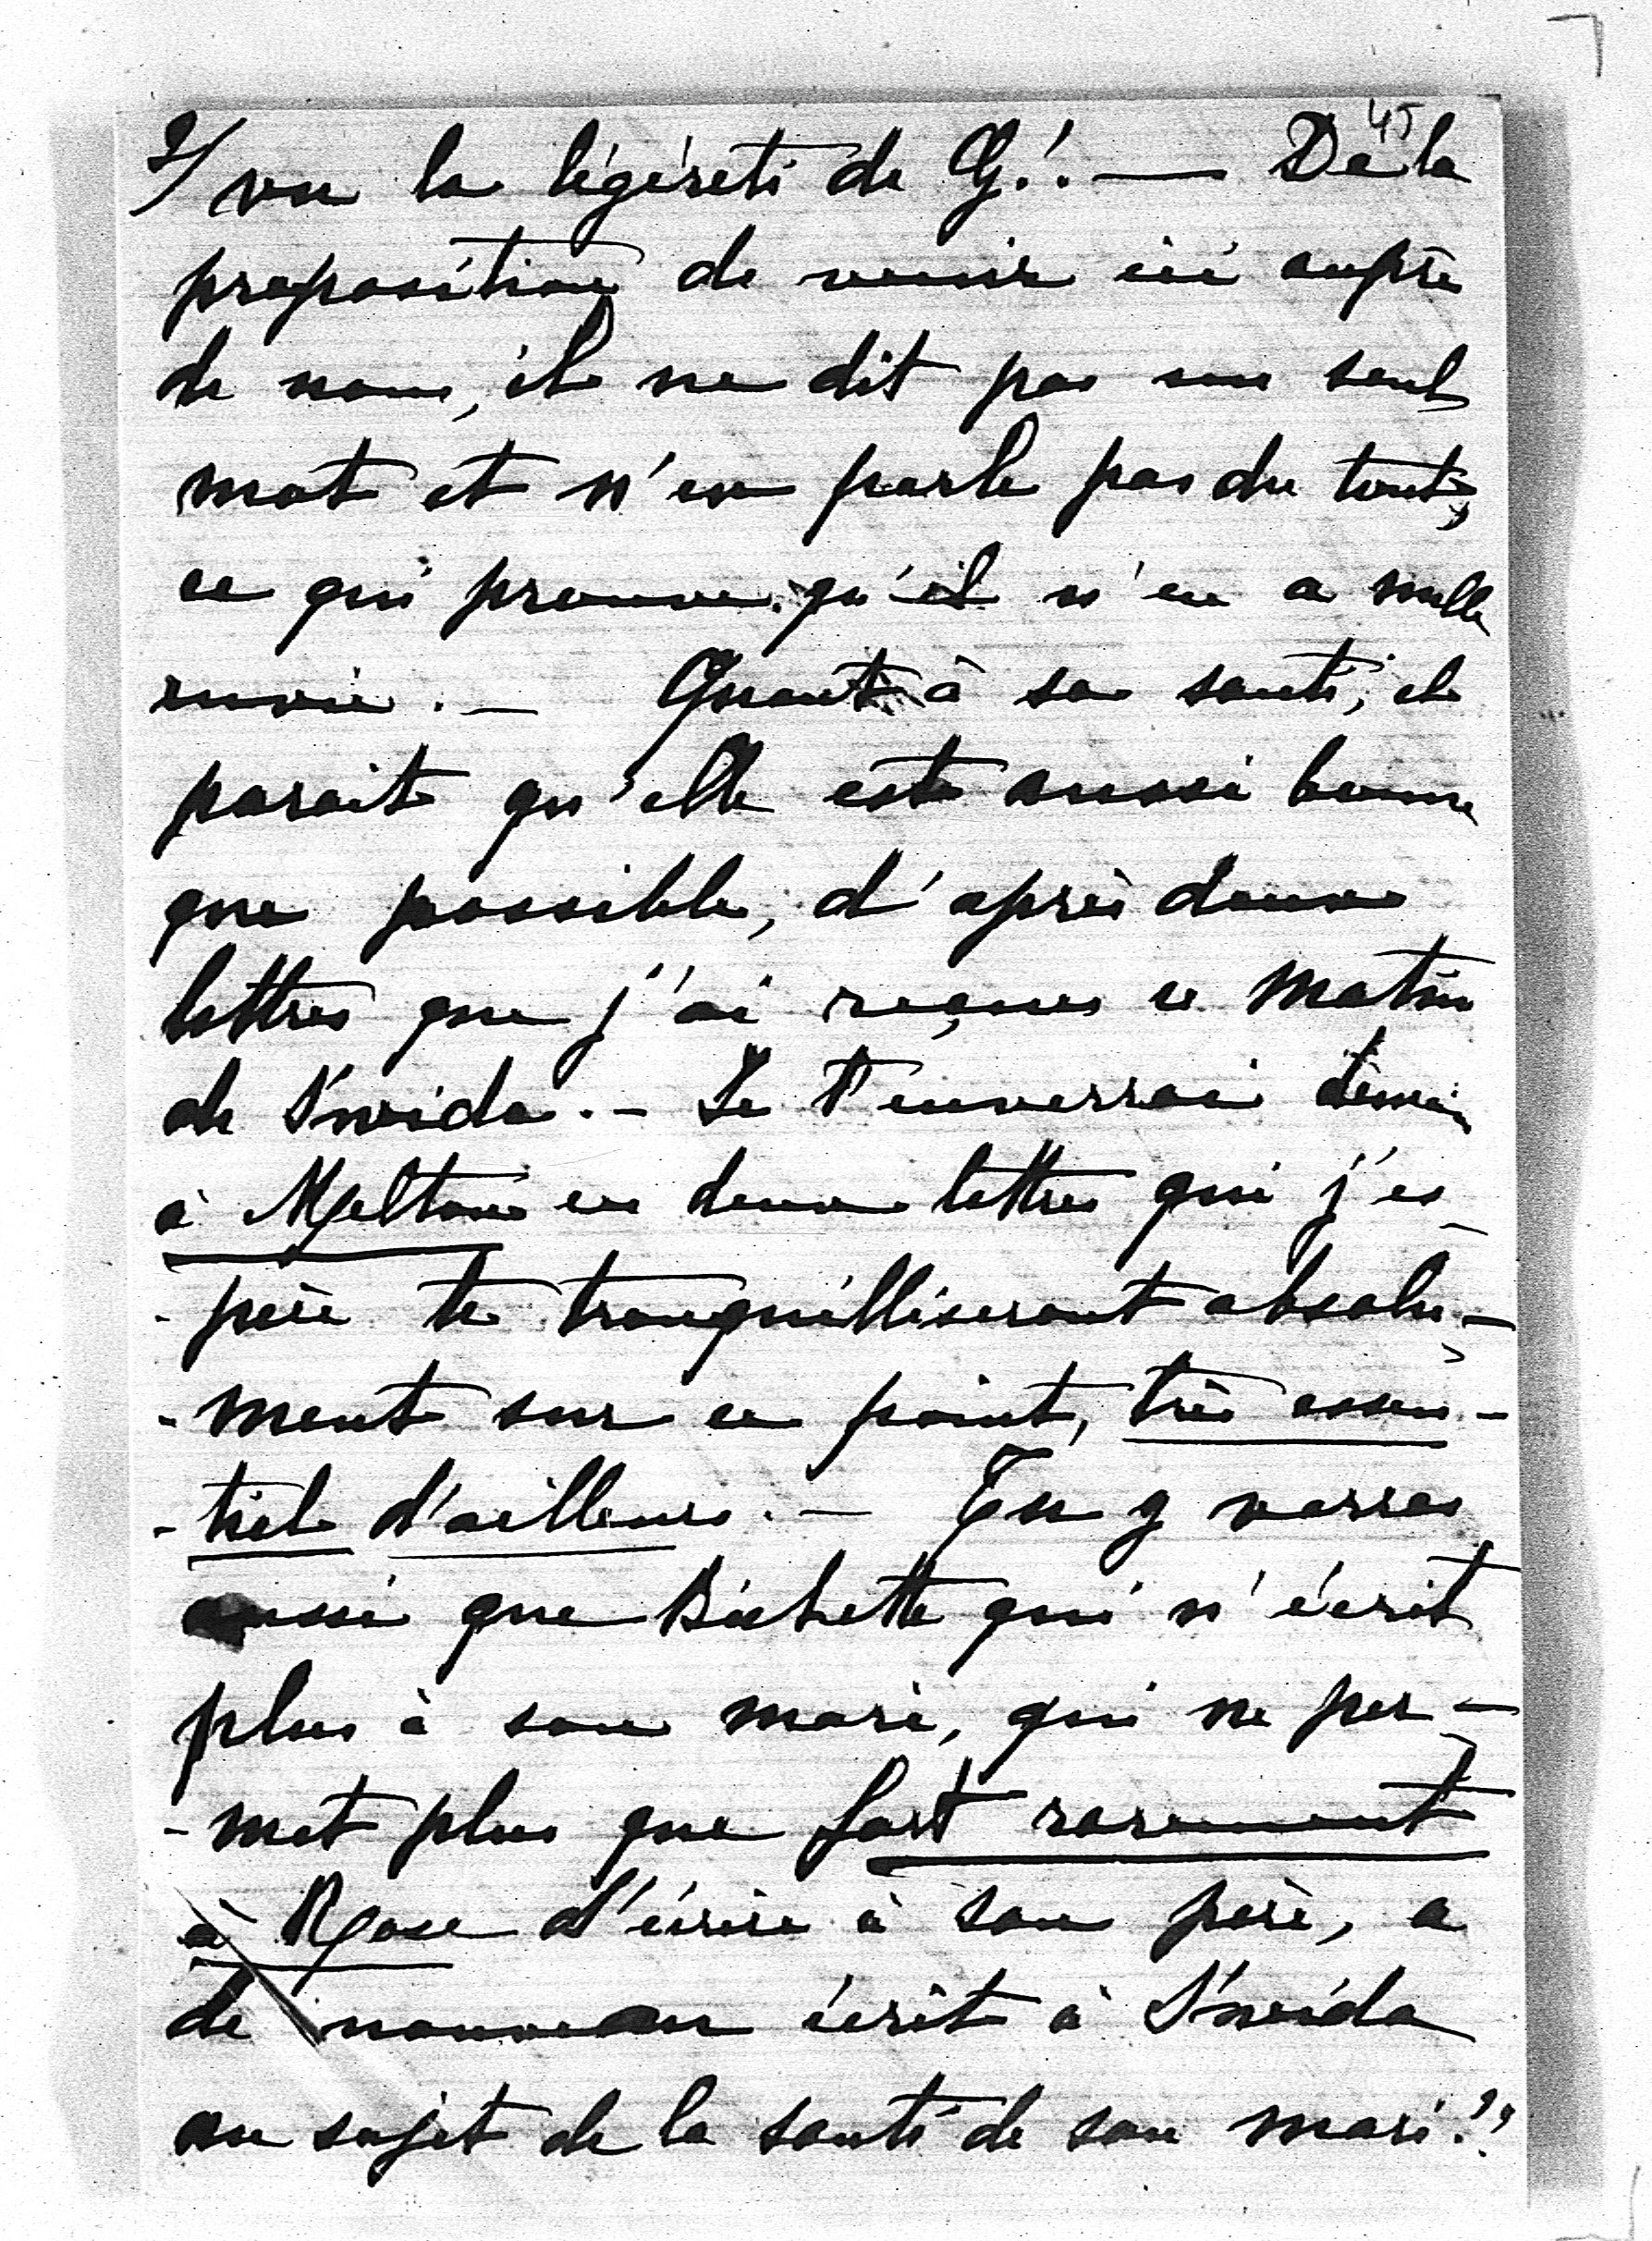 45
2/ vu la légéreté de G!. — De la
proposition de venir ici auprès
de nous, il ne dit pas un seul
mot et n'en parle pas du tout,
ce qui prouve qu'il n'en a nulle
envie. — Quant à sa santé, il
parait qu'elle est aussi bonne
que possible, d'après deux
lettres que j'ai reçues ce matin
de Swida. — Je t'enverrai demain
à Meltoni ces deux lettres qui j'es-
-père te tranquilliseront absolu-
-ment sur ce point, très essen-
-tiel d'ailleurs. — Tu y verras
aussi que Bichette qui n'écrit
plus à son mari, qui ne per-
-met plus que fort rarement
à Rose d'écrire à son père, a
de nouveau écrit à Swida
au sujet de la santé de son mari!?